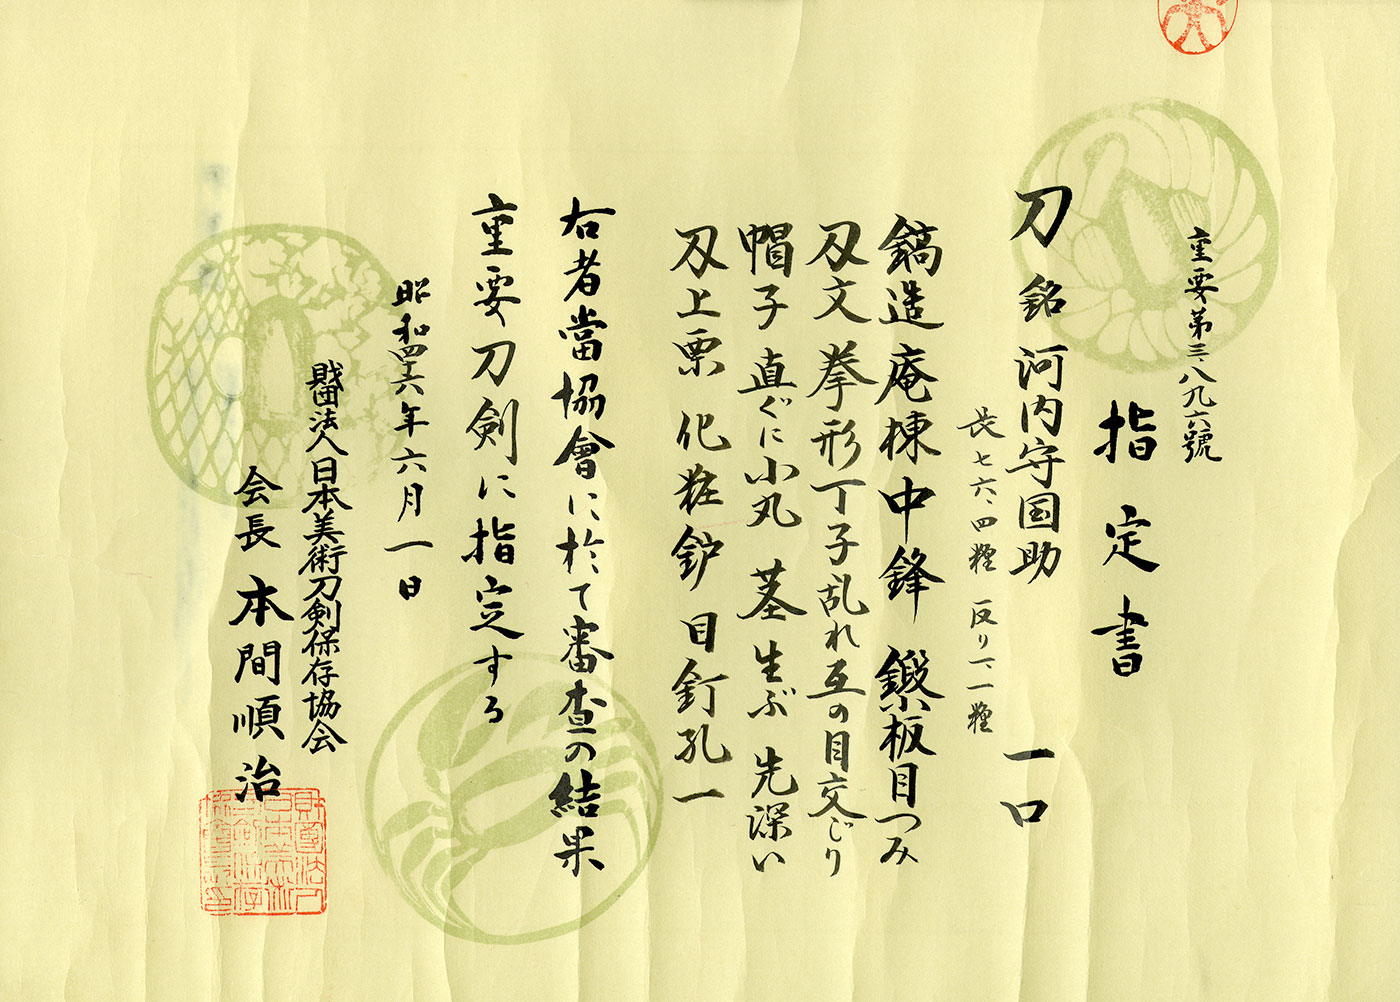 重要第三、八九六號
指定書
刀 銘 河内守国助 一口
長七六・四糎 反り一・一糎
鎬造 庵棟 中鋒 鍛板目つみ
刃文 拳形丁子乱れ互の目交じり
帽子 直ぐに小丸 茎 生ぶ 先深い
刃上栗 化粧鈩 目釘孔一
右者當協會に於て審査の結果
重要刀剣に指定する
昭和四十六年六月一日
財団法人日本美術刀剣保存協会
会長 本間順治